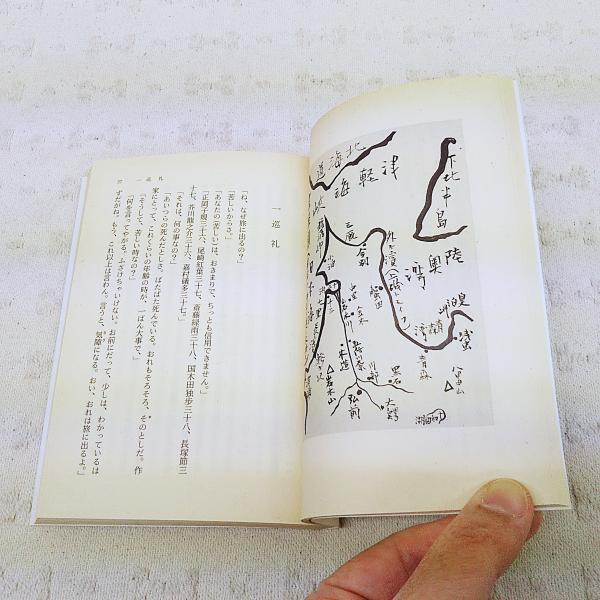 下北半島
陸奥湾
津軽海峡
北海道
外ヶ浜
三厩
今別
蟹田
青森
八甲田山
黒石
大鰐
弘前
岩木山
木造
金木
一巡礼
一巡礼
「ね、なぜ旅に出るの？」
「苦しいからさ。」
「あなたの（苦しい）は、おきまりで、ちっとも信用できません。」
「正岡子規三十六、尾崎紅葉三十七、斎藤緑雨三十八、国木田独歩三十八、長塚節三
十七、芥川龍之介三十六、嘉村礒多三十七。」
「それは、何の事なの？」
「あいつらの死んだとしさ。ばたばた死んでいる。おれもそろそろ、そのとしだ。作
家にとって、これくらいの年齢の時が、一ばん大事で、」
「そうして、苦しい時なの？」
「何を言ってやがる。ふざけちゃいけない。お前にだって、少しは、わかっているは
ずだがね。もう、これ以上は言わん。言うと、気障になる。おい、おれは旅に出るよ。」